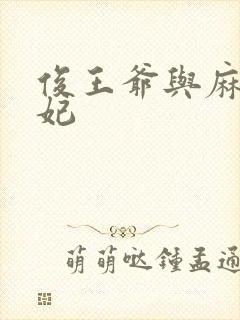 俊王爷與麻
妃
萌萌哒鍾孟通